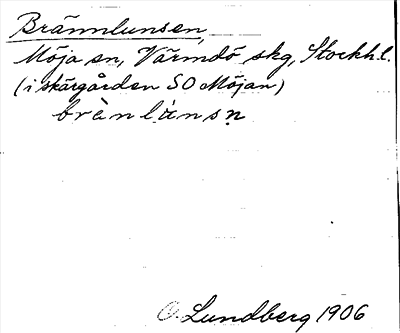 Brännlunsen,
Möja sn, Värmdö skg, Stockh.l.
(i skärgården SO Möjan)
brànlúnsn̥
O. Lundberg 1906